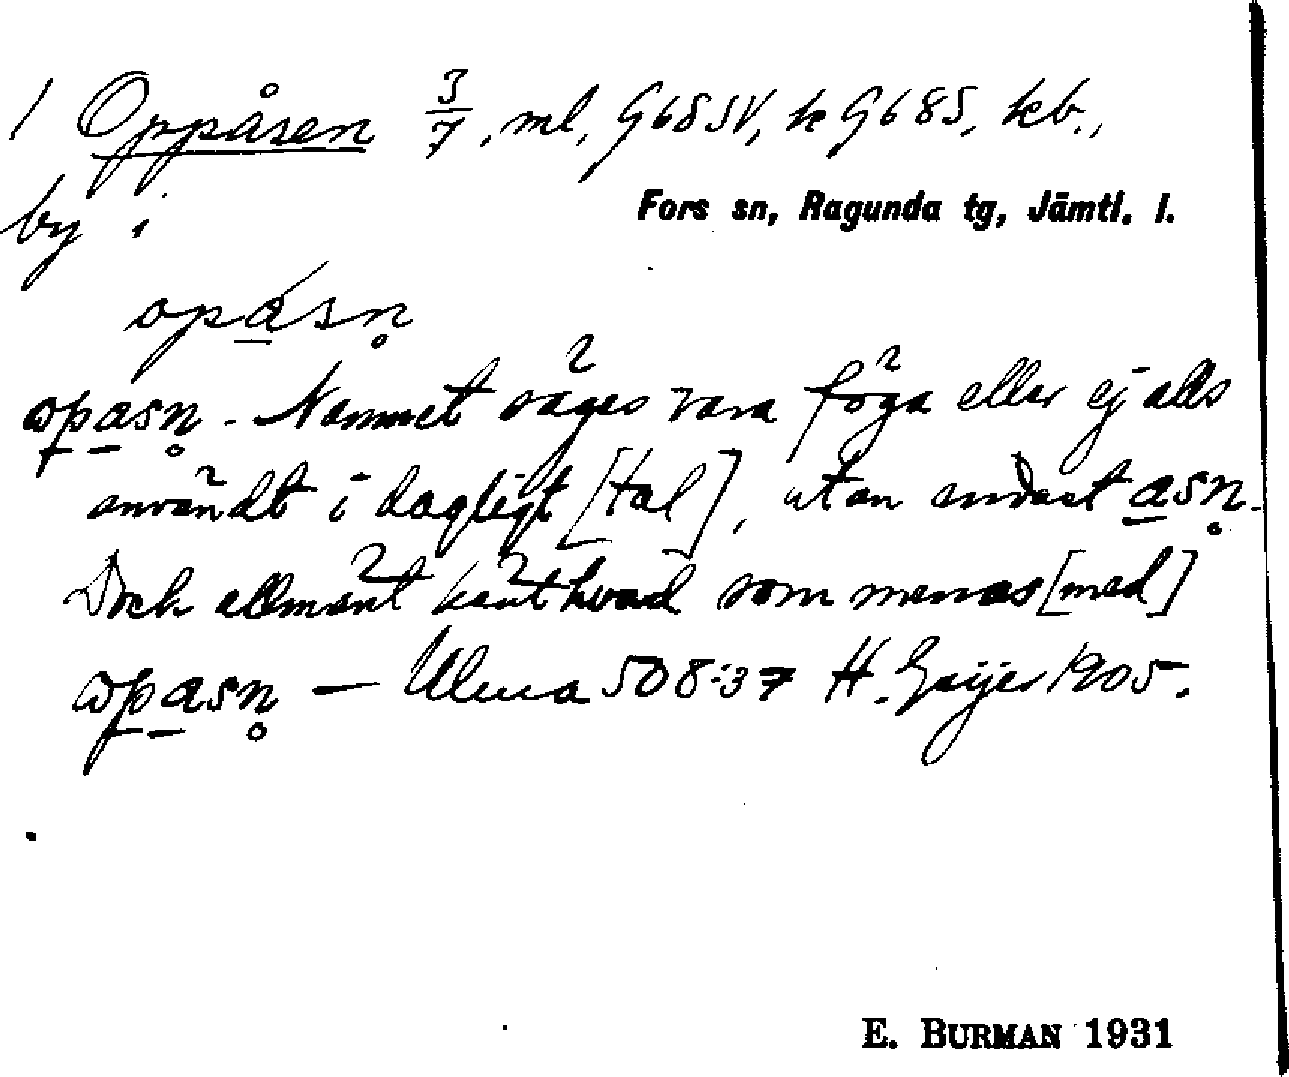 1 Oppåsen 3/7, ml, G68SV, k G68S, kb.,
by i
Fors sn, Ragunda tg, Jämtl. l.
opásn̥
opasn̥ - Namnet säges vara föga eller ej alls
användt i dagligt [tal], utan endast asn̥.
Dock allmänt känt hvad som menas [med]
opasn̥ — Ulma 508:37 H. Geijer 1905.
E. BURMAN 1931